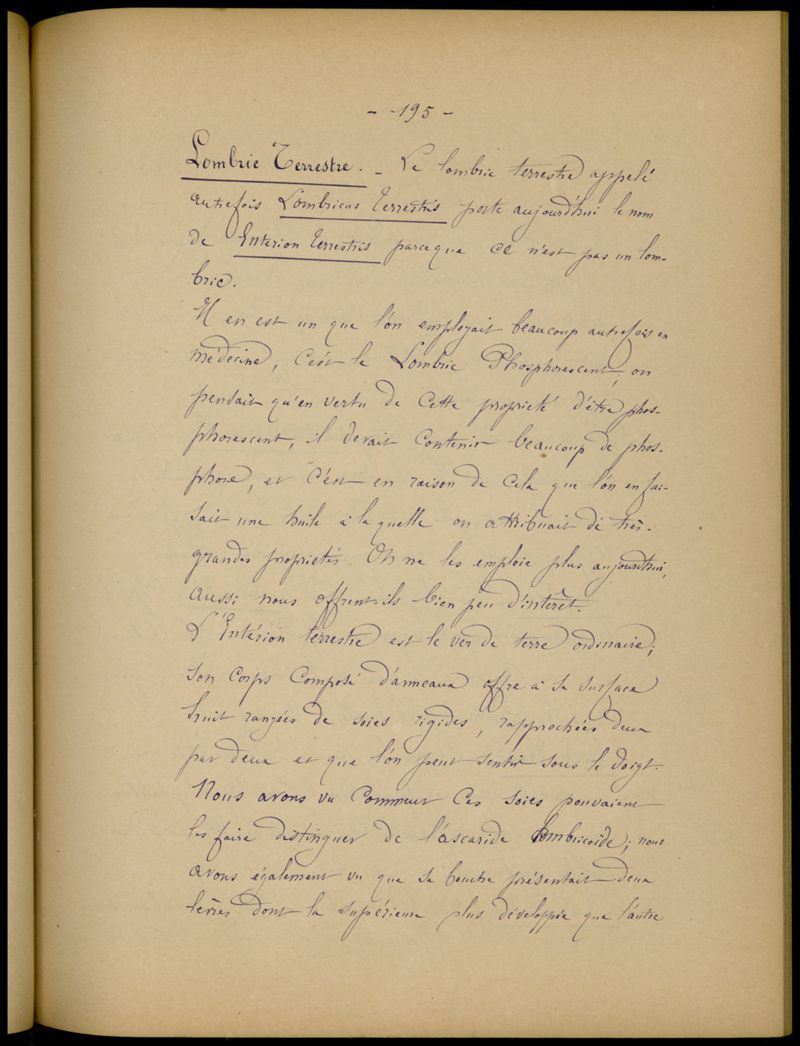 - 195 -
Lombric Terrestre. - Le lombric terrestre appelé
autrefois Lombricus Terrestris porte aujourd'hui le nom
de Enterion Terrestris parceque ce n'est pas un lom-
bric.
Il en est un que l'on employait beaucoup autrefois en
medecine, c'est le Lombric Phosphorescent, on
pensait qu'en vertu de cette proprieté d'être phos-
phorescent, il devait contenir beaucoup de phos-
phore, et c'est en raison de cela que l'on en fai-
sait une huile à laquelle on attribuait de très-
grandes proprietés. On ne les emploie plus aujourd'hui,
aussi nous offrent-ils bien peu d'intérêt.
L'Entérion terrestre est le ver de terre ordinaire;
son corps composé d'anneaux offre à sa surface
huit rangées de soies rigides, rapprochées deux
par deux et que l'on peut sentir sous le doigt.
Nous avons vu comment ces soies pouvaient
les faire distinguer de l'ascaride lombricoïde; nous
avons également vu que sa bouche présentait deux
lèvres dont la supérieure plus développée que l'autre